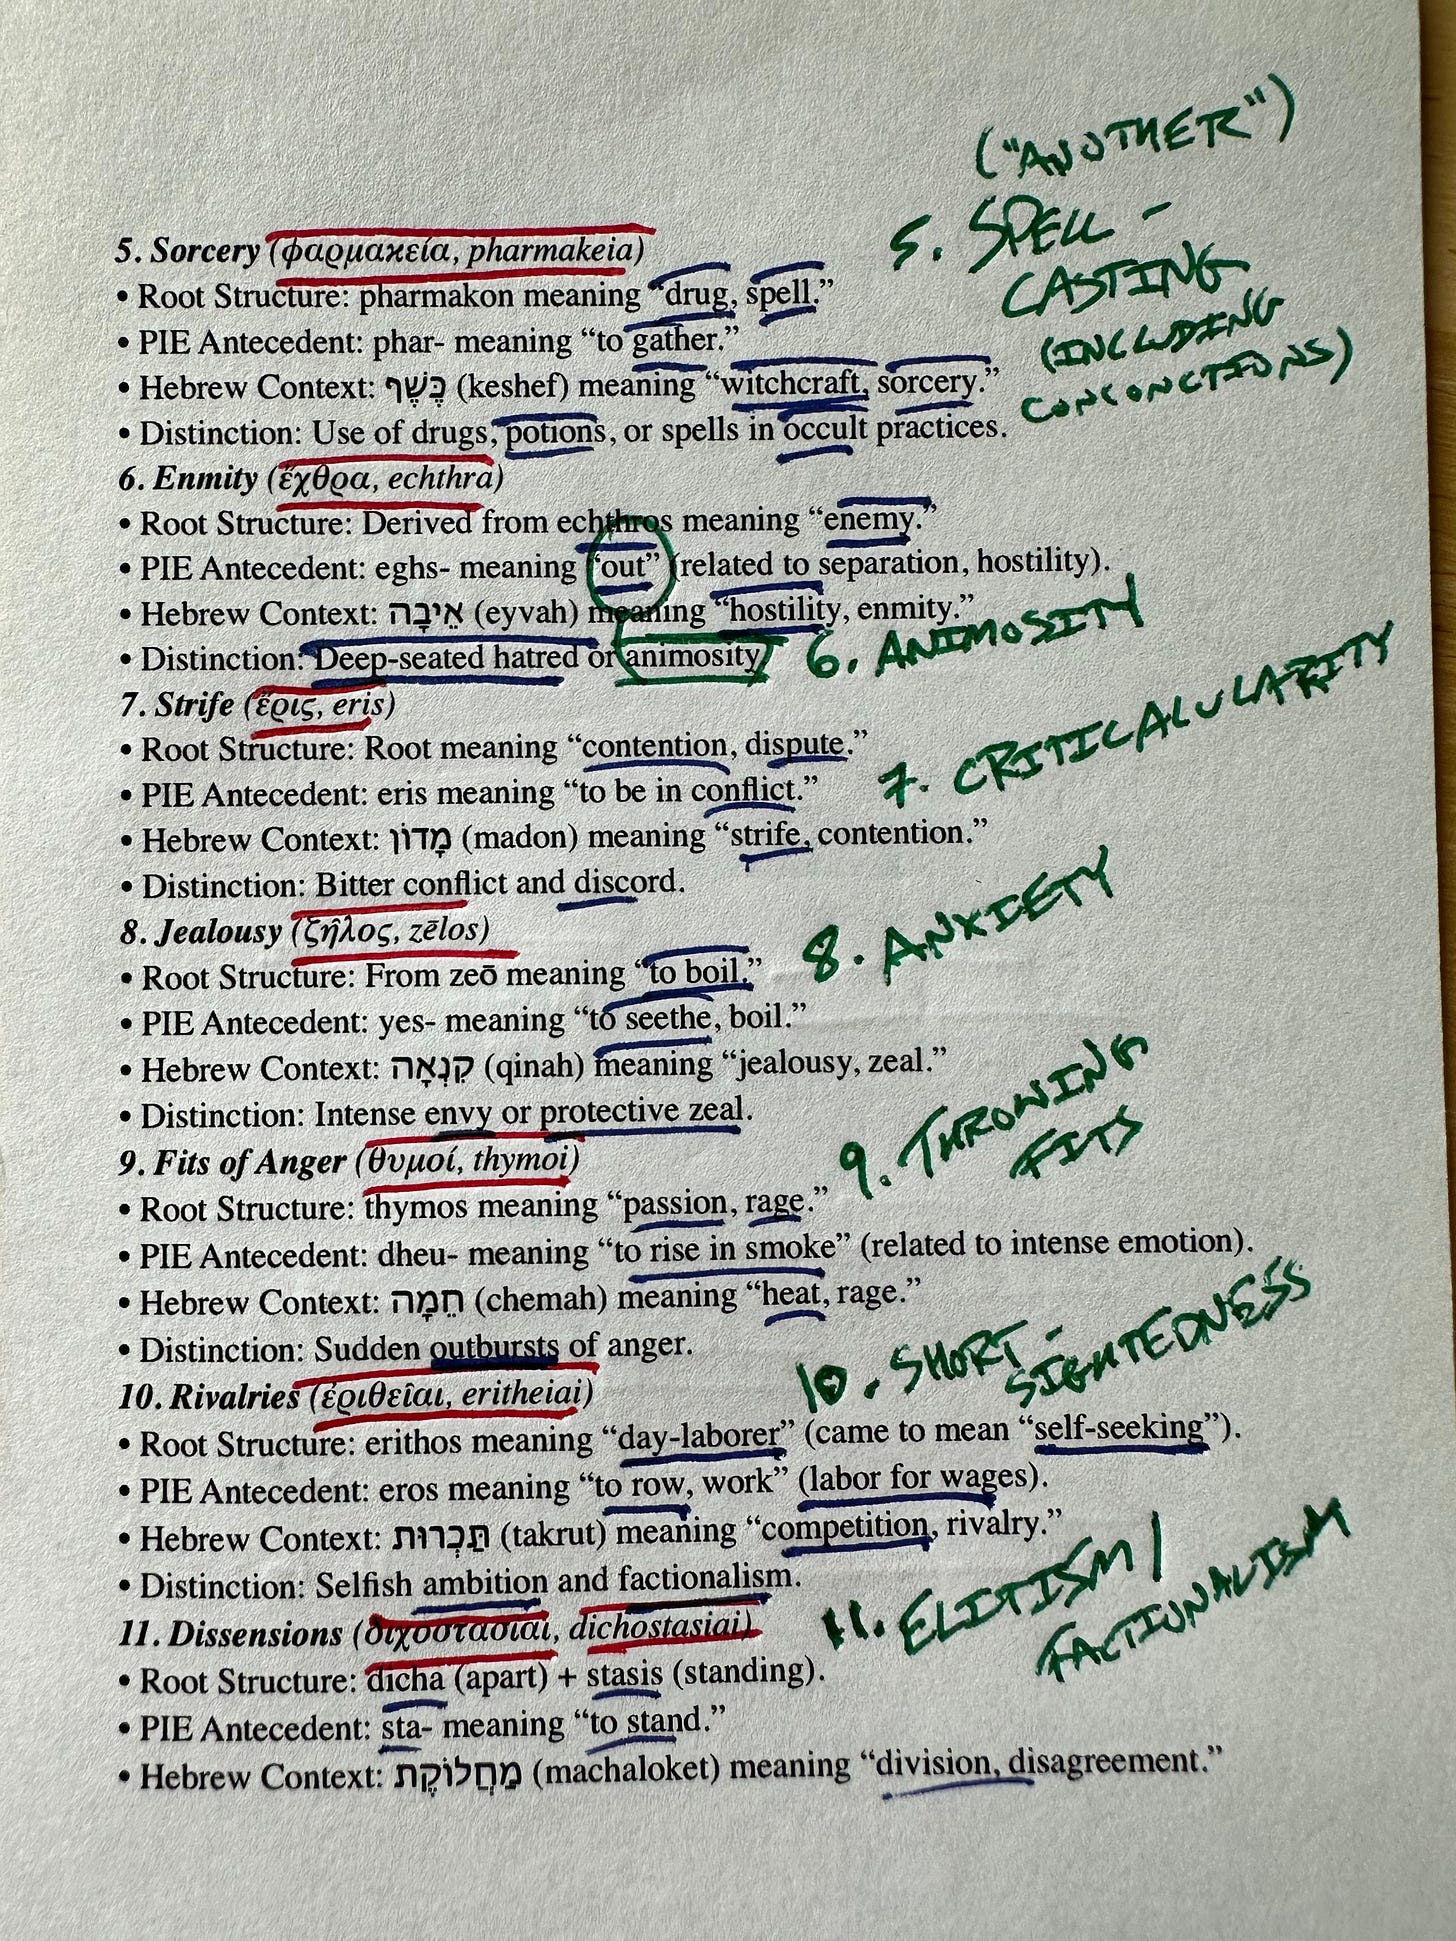 ("ANOTHER")
5. Sorcery (φαρμακεία, pharmakeia)
5. SPELL-
CASTING
(INCLUDING
CONCONCTIONS)
• Root Structure: pharmakon meaning “drug, spell.”
• PIE Antecedent: phar- meaning “to gather.”
• Hebrew Context: כֶּשֶׁף (keshef) meaning “witchcraft, sorcery.”
• Distinction: Use of drugs, potions, or spells in occult practices.
6. Enmity (ἔχθρα, echthra)
• Root Structure: Derived from echthros meaning “enemy.”
• PIE Antecedent: eghs- meaning “out” (related to separation, hostility).
• Hebrew Context: אֵיבָה (eyvah) meaning “hostility, enmity.”
• Distinction: Deep-seated hatred or animosity.
6. ANIMOSITY
7. Strife (ἔρις, eris)
• Root Structure: Root meaning “contention, dispute.”
7. CRITICALULARITY
• PIE Antecedent: eris meaning “to be in conflict.”
• Hebrew Context: מָדוֹן (madon) meaning “strife, contention.”
• Distinction: Bitter conflict and discord.
8. Jealousy (ζῆλος, zēlos)
8. ANXIETY
• Root Structure: From zeō meaning “to boil.”
• PIE Antecedent: yes- meaning “to seethe, boil.”
• Hebrew Context: קִנְאָה (qinah) meaning “jealousy, zeal.”
• Distinction: Intense envy or protective zeal.
9. Fits of Anger (θυμοί, thymoi)
9. THROWING
FITS
• Root Structure: thymos meaning “passion, rage.”
• PIE Antecedent: dheu- meaning “to rise in smoke” (related to intense emotion).
• Hebrew Context: חֵמָה (chemah) meaning “heat, rage.”
• Distinction: Sudden outbursts of anger.
10. SHORT-
SIGHTEDNESS
10. Rivalries (ἐριθεῖαι, eritheiai)
• Root Structure: erithos meaning “day-laborer” (came to mean “self-seeking”).
• PIE Antecedent: eros meaning “to row, work” (labor for wages).
• Hebrew Context: תַּכְרוּת (takrut) meaning “competition, rivalry.”
• Distinction: Selfish ambition and factionalism.
11. Dissensions (διχοστασίαι, dichostasiai)
11. ELITISM/
FACTIONALISM
• Root Structure: dicha (apart) + stasis (standing).
• PIE Antecedent: sta- meaning “to stand.”
• Hebrew Context: מַחֲלוֹקֶת (machaloket) meaning “division, disagreement.”